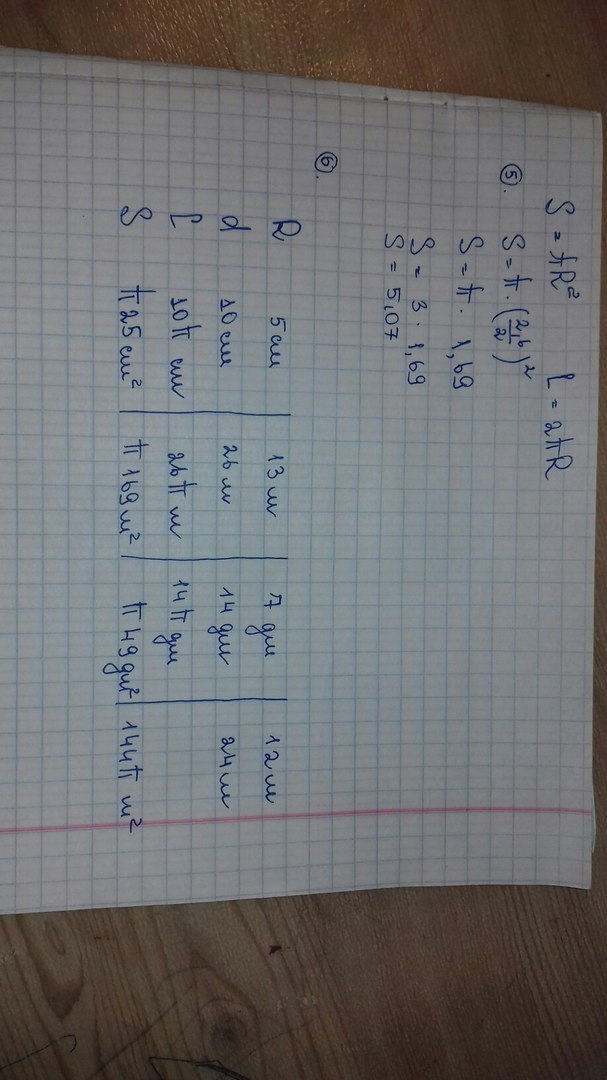 S = πR² L = 2πR
⑤. S = π · (2,6/2)²
S = π · 1,69
S = 3 · 1,69
S = 5,07
⑥.
R 5 см 13 м 7 дм 12 м
d 10 см 26 м 14 дм 24 м
L 10π см 26π м 14π дм
S π25 см² π169 м² π49 дм² 144π м²